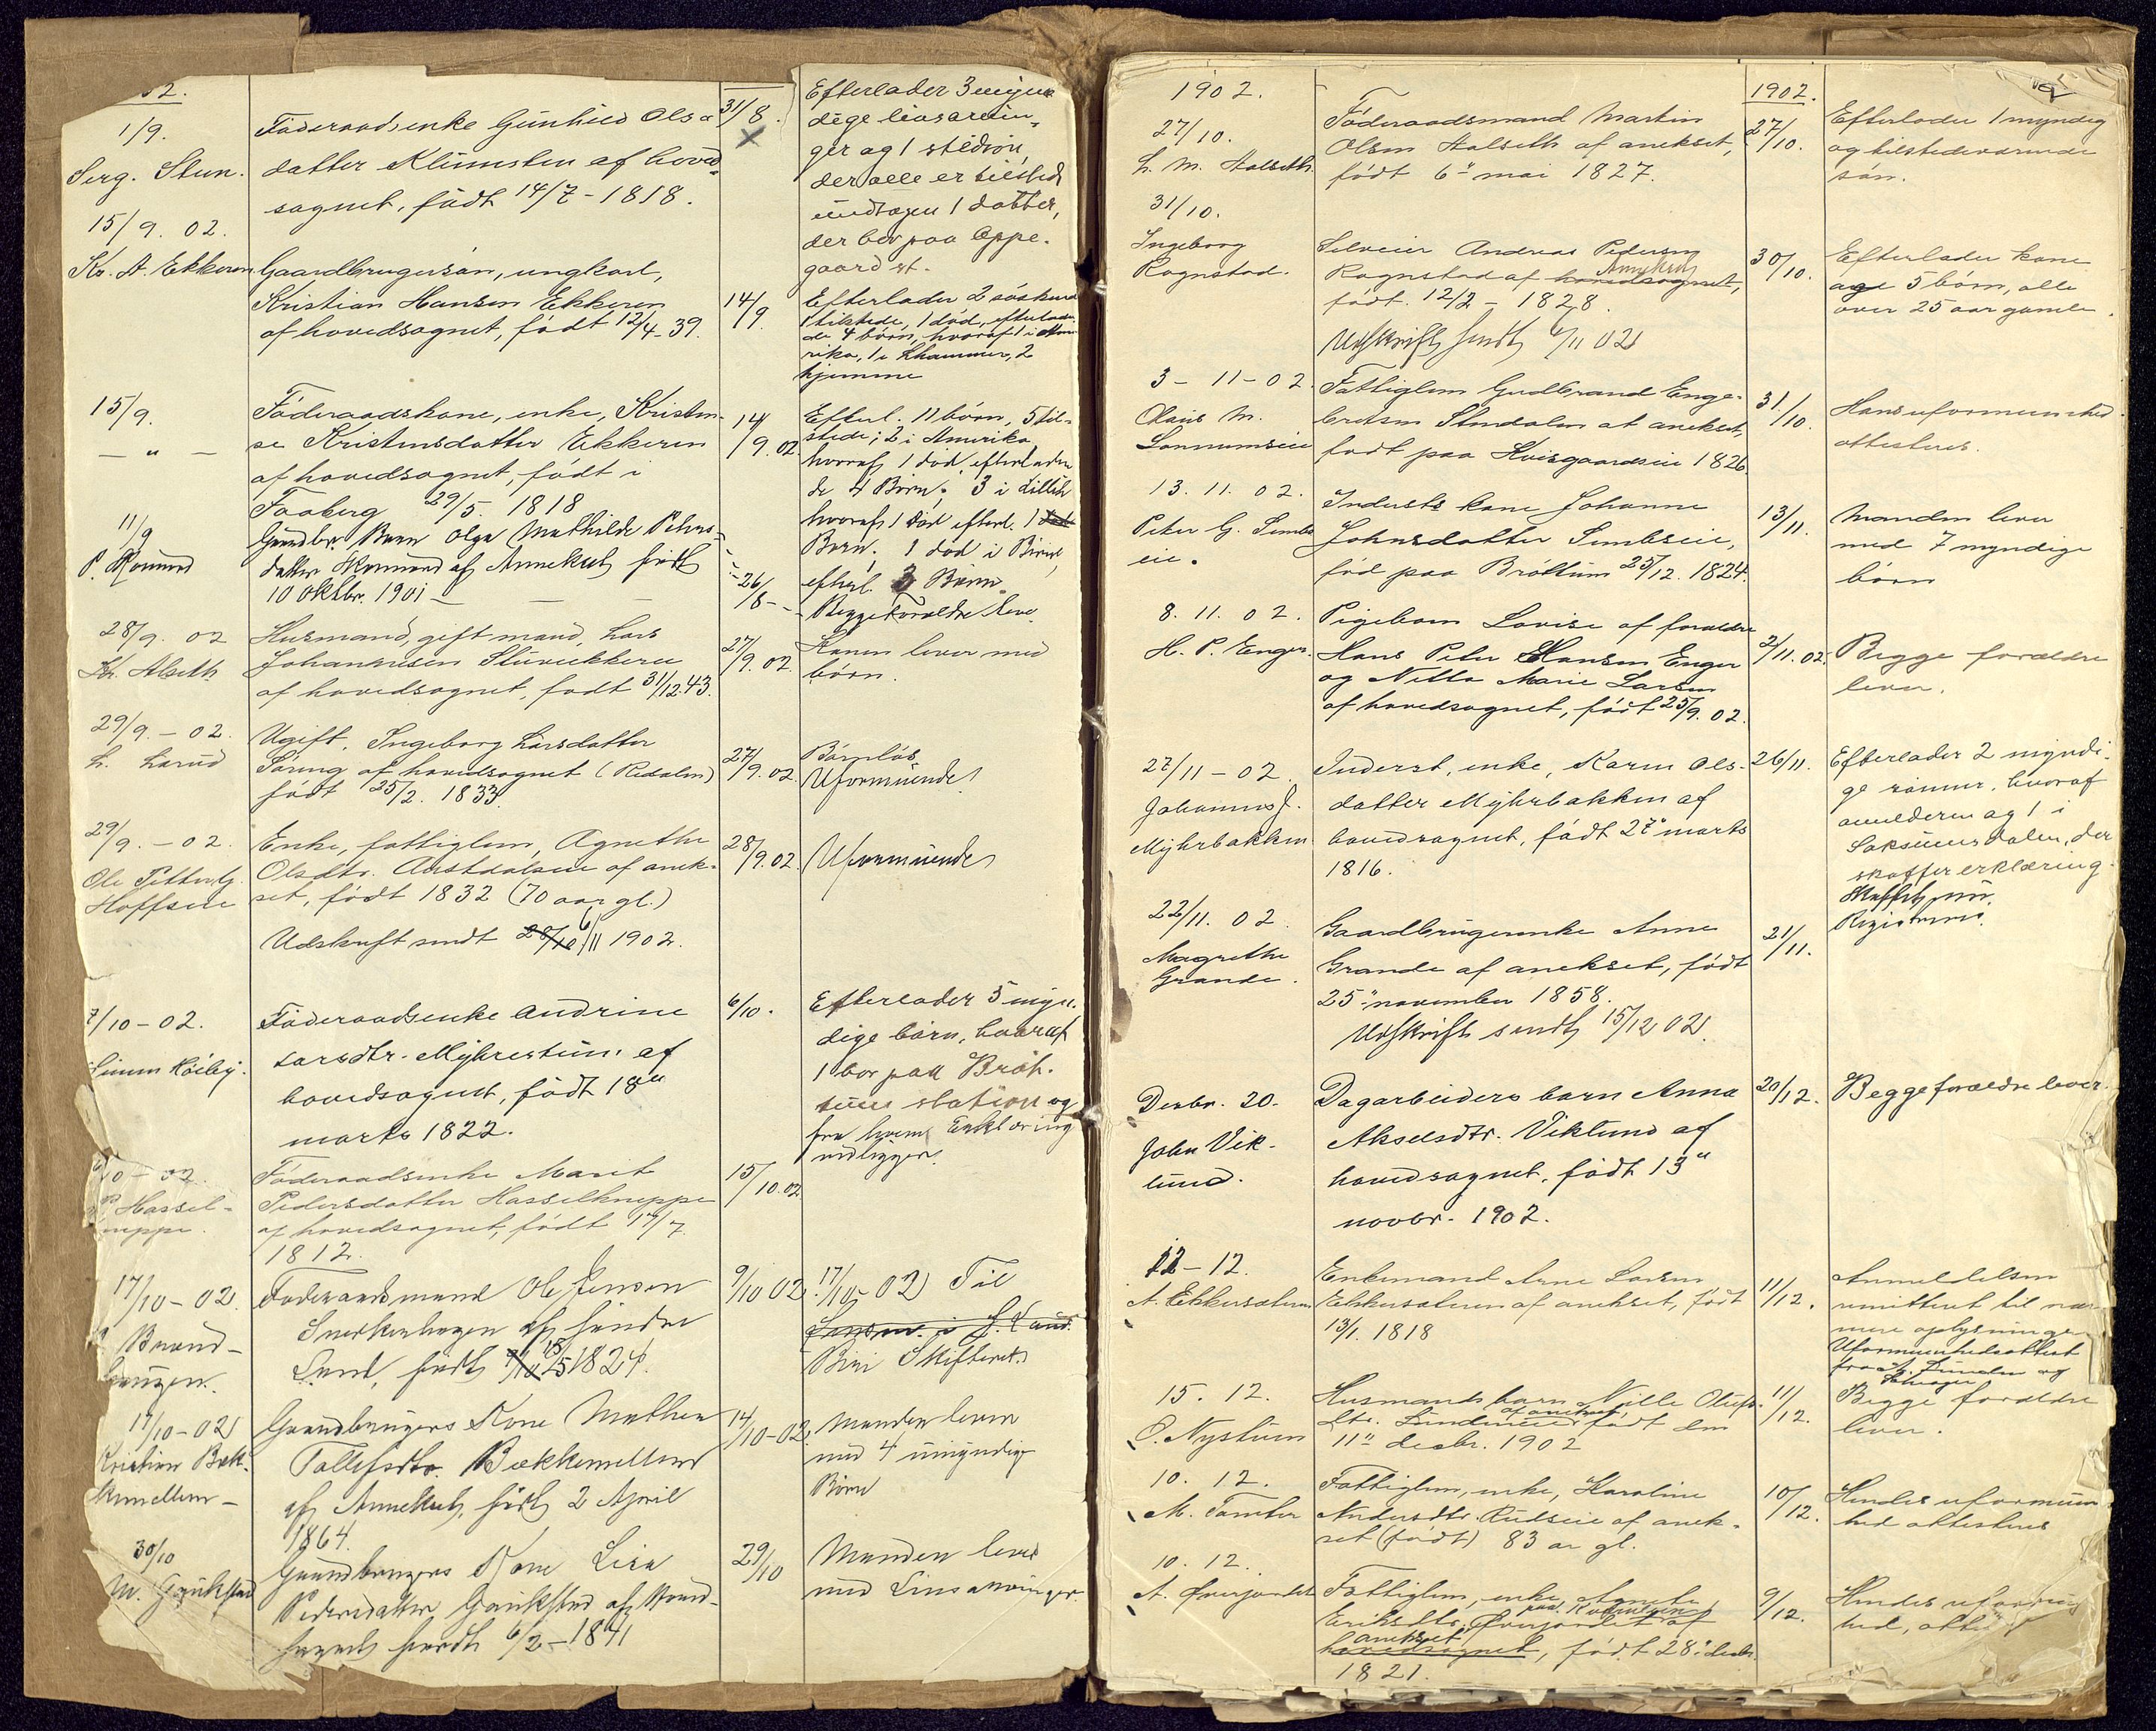 02.
1/9.
Serg. Stun.
Föderaadsenke Gunhild Ols-
datter Klümsten af hoved-
sognet, födt 14/7 - 1818.
31/8.
Efterlader 3 myn-
dige livsarvin-
ger og 1 stedsön,
der alle er tilstede
undtagen 1 datter,
der bor paa Oppe-
gaard st.
15/9. 02.
Kr. A. Ekkeren
Gaardbrugersön, ungkarl,
Kristian Hansen Ekkeren
af hovedsognet, födt 12/4-39.
14/9.
Efterlader 2 söskend
1 tilstede, 1 död, efterladen
de 4 börn, hvoraf 1 i Ame
rika, 1 i Lhammer, 2
hjemme
15/9.
— " —
Föderaadskone, enke, Kristen-
se Kristensdatter Ekkeren
af hovedsognet, födt i
Faaberg 29/5. 1818
14/9. 02.
Efterl. 11 börn, 5 til-
stede; 2 i Amerika,
hvoraf 1 död, efterladen
de 4 Börn; 3 i Lilleh
hvoraf 1 död efterl. 1
Barn. 1 död i Biri
efterl. 3 Börn.
11/9
Gaardbr. Barn Olga Mathilde Peters-
datter af Annekset födt
10 oktbr. 1901 —
26/8 -
Begge Forældre leve.
28/9. 02
Kr. Alseth
Husmand, gift mand, Lars
Johannesen Stuvekkeren
af hovedsognet, födt 31/12.43.
27/9. 02.
Konen lever med
börn.
29/9. - 02.
L. Larud
Ugift, Ingeborg Larsdatter
Söring af hovedsognet (Redalen)
födt 25/2. 1833.
27/9. 02.
Barnlös,
Uformuende
29/9. - 02.
Ole Petter G.
Hoffseie
Enke, fattiglem, Agnethe
Olsdtr. Austdalseie af anek-
set, födt 1832 (70 aar gl.)
Udskrift sendt 28/10 6/11 1902.
28/9.02.
Uformuende
7/10 - 02.
Simen Röiby.
Föderaadsenke Andrine
Larsdtr. Myhrestuen af
hovedsognet, födt 18de
marts 1822.
6/10.
Efterlader 5 myn-
dige börn, hvoraf
1 bor paa Bröt-
tum station og
fra hvem Erklæring
vedligger.
10 - 02.
Hassel-
neppe.
Föderaadsenke Marit
Pedersdatter Hasselkneppe
af hovedsognet, födt 17/7
1812.
15/10.02
17/10 - 02.
Braend-
haugen.
Föderaadsmand Ole Jensen
Snerkenhagen af Söndre
Land, födt 15/5 1824.
9/10 02
17/10 - 02 Til
Lensm. i S. Land.
Biri Skifteret.
17/10 - 02
Kristian Bæk-
kemellem -
Gaardbrugers Kone Mathea
Tollefsdtr. Bækkemellem
af Annekset, födt 2 April
1864.
14/10-02.
Manden lever
med 4 umyndige
Börn
30/10
M. Gjeikstad
Gaardbrugers Kone Lisa
Pedersdatter Gjeikstad af Hoved-
sognet född 6/2 - 1841
29/10
Manden lever
med Livsarvinger.
1902.
1902.
27/10.
L. M. Halseth
Föderaadsmand Martin
Olsen Halseth af anekset,
födt 6" mai 1827.
27/10.
Efterlader 1 myndig
og tilstedeværende
sön.
31/10.
Ingeborg
Rognstad.
Selveier Andreas Pedersen
Rognstad af hovedsognet, Annekset
födt 12/2 - 1828.
Udskrift sendt 4/11 02
30/10.
Efterlader kone
og 5 börn, alle
over 25 aar gamle.
3 - 11 - 02.
Olaus M.
Lonnumseie
Fattiglem Gudbrand Enge-
bretsen Stendalen af anekset,
födt paa Kvisgaardseie 1826.
31/10.
Hans uformuenhed
attesteres.
13. 11. 02.
Peter G. Simbs
eie.
Indersts kone Johanne
Johnsdatter Simbseie,
föd paa Bröttum 25/12. 1824.
13/11.
Manden lever
med 7 myndige
börn
8. 11. 02.
H. P. Enger.
Pigebarn Lovise af forældre
Hans Peter Hansen Enger
og Netta Marie Larsen
af hovedsognet, födt 25/9. 02.
2/11. 02.
Begge forældre
lever.
27/11 - 02.
Johannes J.
Myhrbakken
Inderst, enke, Karen Ols-
datter Myhrbakken af
hovedsognet, födt 27" marts
1816.
26/11.
Efterlader 2 myndi-
ge sönner, hvoraf
anmelderen og 1 i
Saksumsdalen, der
skaffer erklæring.
22/11. 02.
Magrethe
Grande.
Gaardbrugerenke Anne
Grande af anekset, födt
25" november 1858.
Udskrift sendt 15/12 02.
21/11.
Desbr. 20.
John Vik-
lund.
Dagarbeiders barn Anna
Akselsdtr. Viklund af
hovedsognet, födt 13"
novbr. 1902.
20/12.
Begge forældre lever.
12 - 12.
A. Ekkersveen
Enkemand Arne Larsen
Ekkersveen af anekset, födt
13/1. 1818
11/12.
Anmeldelsen
remitteret til nær-
mere oplysninger
Uformuenhedsattest
15. 12.
O. Nystuen
Husmands barn Nille Olufs-
dtr. Lundeneie af anekset födt den
11" desbr. 1902
11/12.
Begge forældre
lever.
10. 12.
M. Tömter
Fattiglem, enke, Karoline
Andersdtr. Rudseie af anek-
set (födt) 83 ar gl.
10/12.
Hendes uformuen
hed attesteres
10. 12.
A. Överjordet
Fattiglem, enke Agnete
Eriksdtr. Överjordet af
hovedsognet anekset, födt 28" desbr.
1821.
9/12.
Hendes uformuen
hed, atte